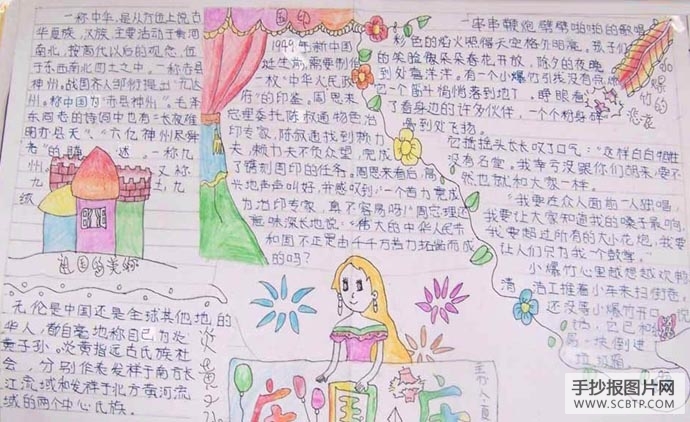 一称中华,是从方位上说古
华夏族,汉族主要活动于黄河
南北,按商代以后的观念,位
于东西南北四土之中。一称赤县
神州,战国末人邹衍提出"九
州。称中国为"赤县神州"。毛泽
东同志的诗词中也有"长夜难
明赤县天"、"六亿神州尽舜
一称九
州。又称
九
祖国的美称
国印
1949年新中国
诞生前,需要制作
一枚"中华人民政
府"的印鉴。周恩来
总理委托陈叔通物色治
印专家,陈叔通找到
夫,不负众望,完成
了镌刻国印的任务。周恩来看后,高
兴地声声叫好,并感叹到:"一个苦力完成
为治印专家,真不容易呀!"周总理还
意味深长地说:"伟大的中华人民共
和国不正是由千千万苦力拓凿而成
的吗?
小爆竹的悲哀
一串串鞭炮劈劈啪啪的歌唱
彩色的焰火照得天空格外明亮。孩子们
的笑脸像朵朵春花开放,除夕的夜晚
到处喜洋洋。有一个小爆竹引线没有点燃
它一个筋斗悄悄落到地下,睁眼看
了看身边的许多伙伴,一个个粉身碎
骨到处飞扬。
它摇摇头长长叹了口气:"这样白白牺牲
没有名堂。我幸亏没跟你们胡来,要不
然也就和大家一样。
"我要在众人面前一人独唱,
我要让大家知道我的嗓子最响,
我要超过所有的大小花炮,我要
让人们只为我一个鼓掌。"
小爆竹心里越想越欢畅
清洁工推着小车来扫街巷。
还没等小爆竹开口说
话,它已和
一块倒进
垃圾箱
无论是中国还是全球其他地的
华人,都自豪地称自己为炎
黄子孙。炎黄指远古氏族社
会,分别作表发祥于南方长
江流域和发祥于北方黄河流
域的两个中心氏族。
炎黄子孙
国庆
手抄报图片网
WWW.SCBTP.COM